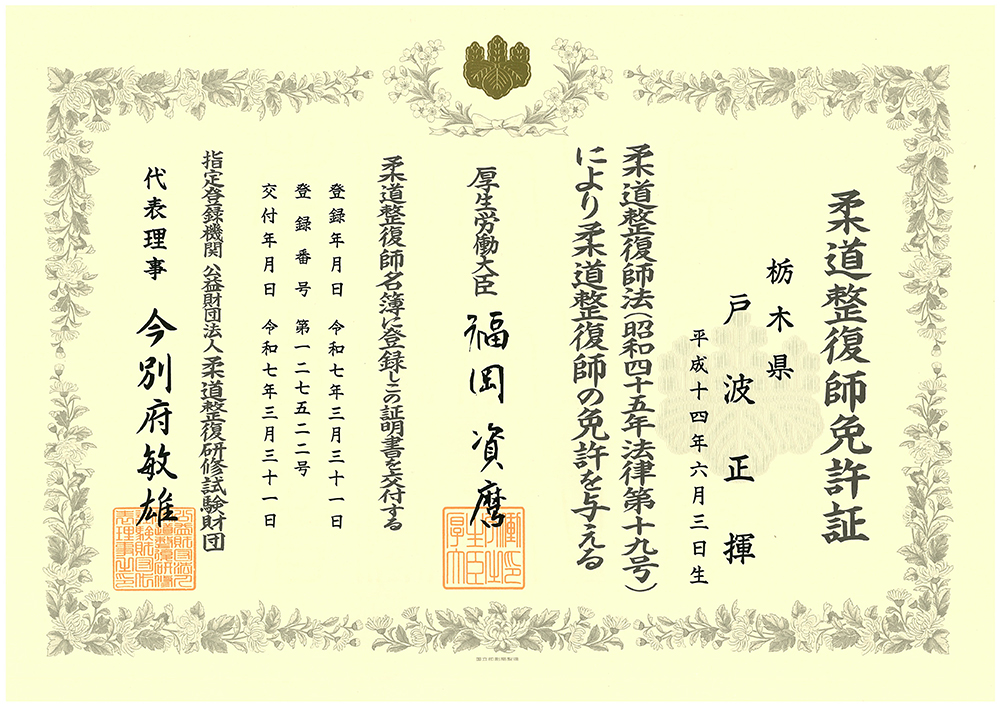 柔道整復師免許証
栃木県
戸波正揮
平成十四年六月三日生
柔道整復師法(昭和四十五年法律第十九号)
により柔道整復師の免許を与える
厚生労働大臣 福岡資麿
柔道整復師名簿に登録しこの証明書を交付する
登録年月日 令和七年三月三十一日
登録番号 第一二七五二二号
交付年月日 令和七年三月三十一日
指定登録機関 公益財団法人柔道整復研修試験財団
代表理事 今別府敏雄